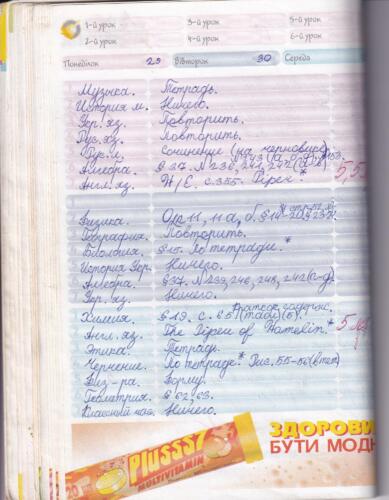 1-й урок 3-й урок 5-й урок
2-й урок 4-й урок 6-й урок
Понеділок 29 Вівторок 30 Середа
Музика. Тетрадь.
История м. Ничего.
Укр. яз. Повторить.
Рус. яз. Повторить.
Рус. л. Сочинение (на черновике).
Алгебра. §37. №236, 241, 242
Англ. яз. С. 355. Pipex*
Физика. Оке 11, 11 а, б. §14-20
География. Повторить.
Биология. §15. По тетради.*
История Укр. Ничего.
Алгебра. §37. №239, 246, 248, 242(в-д).
Укр. яз. Ничего.
Химия. §19. С. 85
Англ. яз. The Piper of Hamelin.*
Этика. Тетрадь.
Черчение. По тетради* Рис. 55-56
Физ-ра. Форму.
Геометрия. § 62, 63.
Классный час. Ничего.
ЗДОРОВИ
БУТИ МОДН
PLUSSS7
MULTIVITAMIN
20